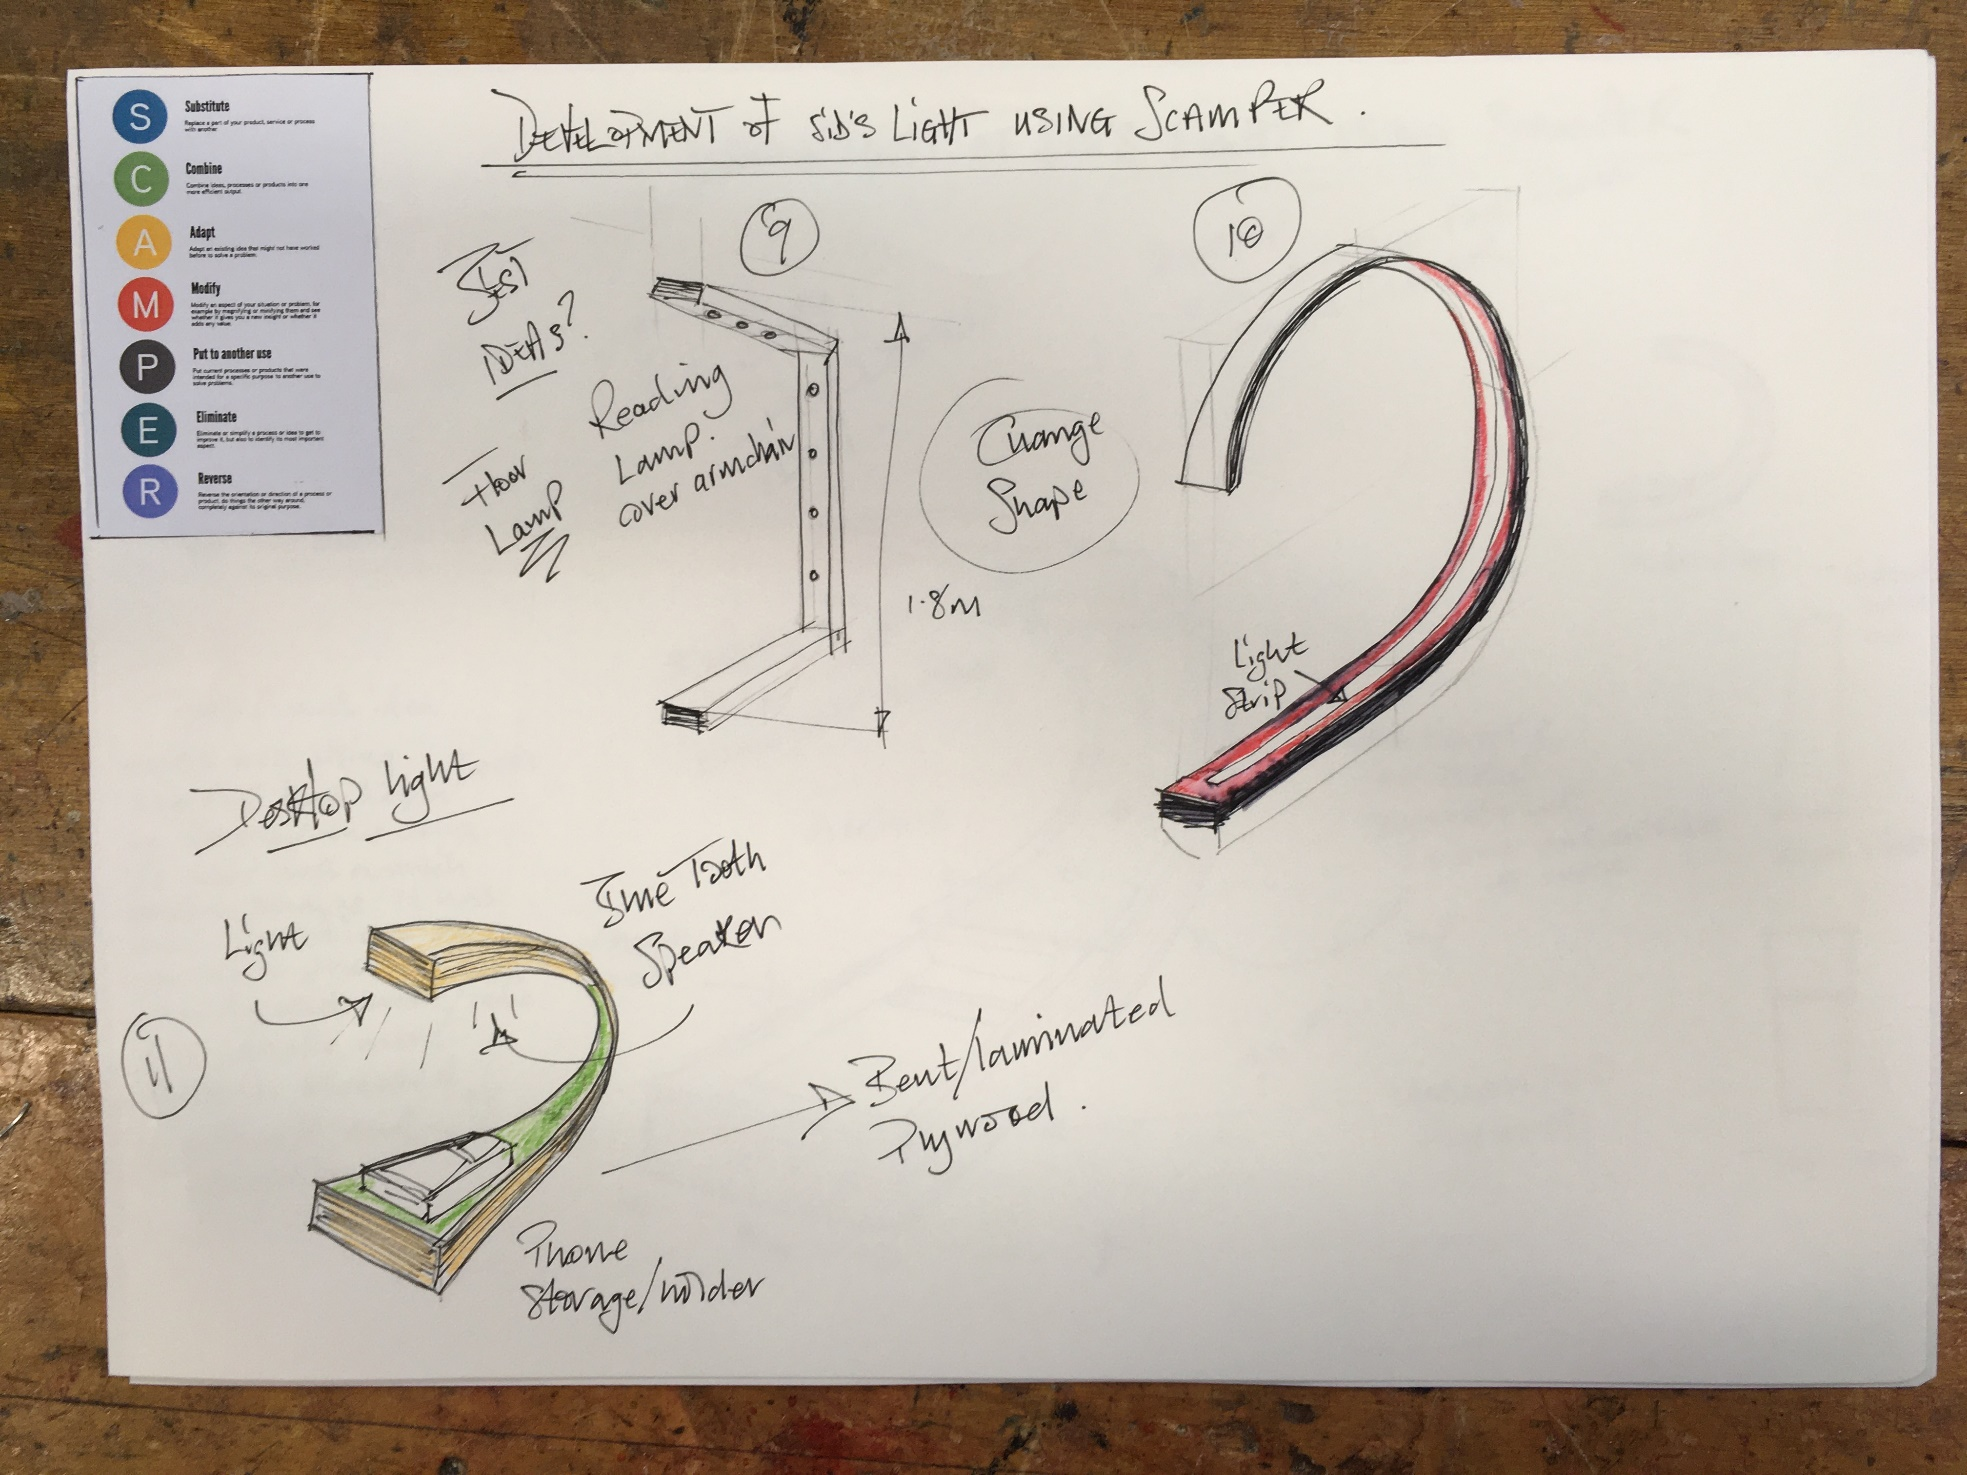 S
Substitute
Replace a part of your product, service or process
with another
C
Combine
Combine ideas, processes or products into one
more efficient output.
A
Adapt
Adapt an existing idea that might not have worked
before to solve a problem.
M
Modify
Modify an aspect of your situation or problem, for
example by magnifying or minifying them and see
whether it gives you a new insight or whether it
adds any value.
P
Put to another use
Put current processes or products that were
intended for a specific purpose to another use to
solve problems.
E
Eliminate
Eliminate or simplify a process or idea to get to
improve it, but also to identify its most important
aspect.
R
Reverse
Reverse the orientation or direction of a process or
product, do things the other way around,
completely against its original purpose.
DEVELOPMENT OF SID'S LIGHT USING SCAMPER.
BEST
IDEAS?
9
10
Floor
Lamp
Reading
Lamp.
over armchair
1.8m
Change
Shape
Light
Strip
Desktop Light
11
Light
Blue Tooth
Speaker
Bent/laminated
Plywood.
Phone
Storage/holder